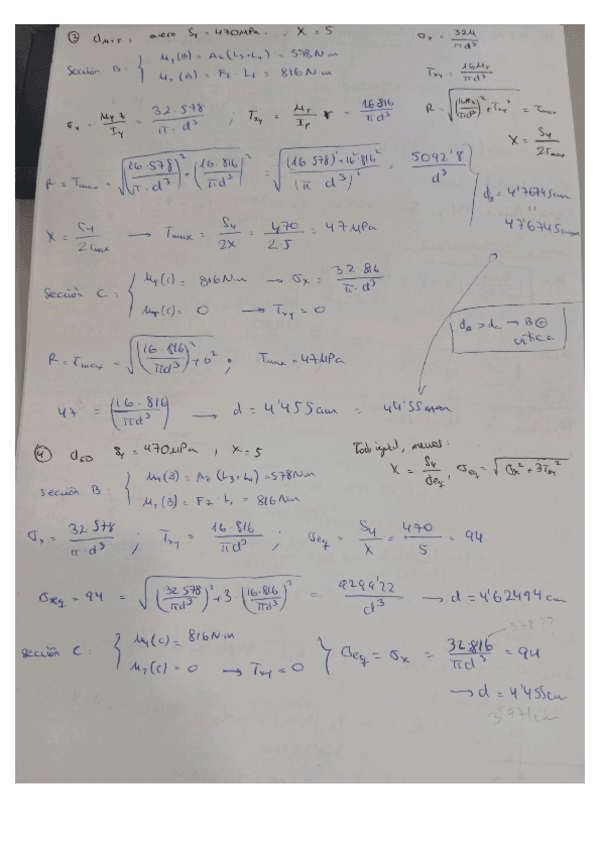 ③ d_{M.T}, acero Sy = 470MPa., X = 5
Sección B: { My(B) = Az(L3+L4) = 578Nm
MT(B) = Fz · L1 = 816Nm
σx = 32M/πd³
Txy = 16MT/πd³
R = √((16My/πd³)² + Txy²) = Tmax
X = Sy/2Tmax
σx = My z/Iy = 32·578/π·d³ ; Txy = MT/Ip r = 16·816/πd³
R = Tmax = √((16·578/π·d³)² + (16·816/πd³)²) = √((16·578)² + 16²·816²/(π·d³)²) = 5092'8/d³
dB = 4'76745cm
=
47'6745mm
X = Sy/2Tmax → Tmax = Sy/2X = 470/2·5 = 47MPa
Sección C: { My(C) = 816Nm → σx = 32·816/π·d³
MT(C) = 0 → Txy = 0
dB > dC → B ⊕
crítica
R = Tmax = √((16·816/πd³)² + 0²) ; Tmax = 47MPa
47 = (16·816/πd³) → d = 4'455cm = 44'55mm
④ dED Sy = 470MPa, X = 5
Todo igual, menos:
X = Sy/σeq, σeq = √(σx² + 3Txy²)
Sección B: { My(B) = Az(L3+L4) = 578Nm
MT(B) = Fz · L1 = 816Nm
σx = 32·578/π·d³ ; Txy = 16·816/πd³ ; σeq = Sy/X = 470/5 = 94
σeq = 94 = √((32·578/πd³)² + 3·(16·816/πd³)²) = 9299'22/d³ → d = 4'62494cm
Sección C: { My(C) = 816Nm
MT(C) = 0 → Txy = 0 } σeq = σx = 32·816/πd³ = 94
→ d = 4'455cm
3'971cm